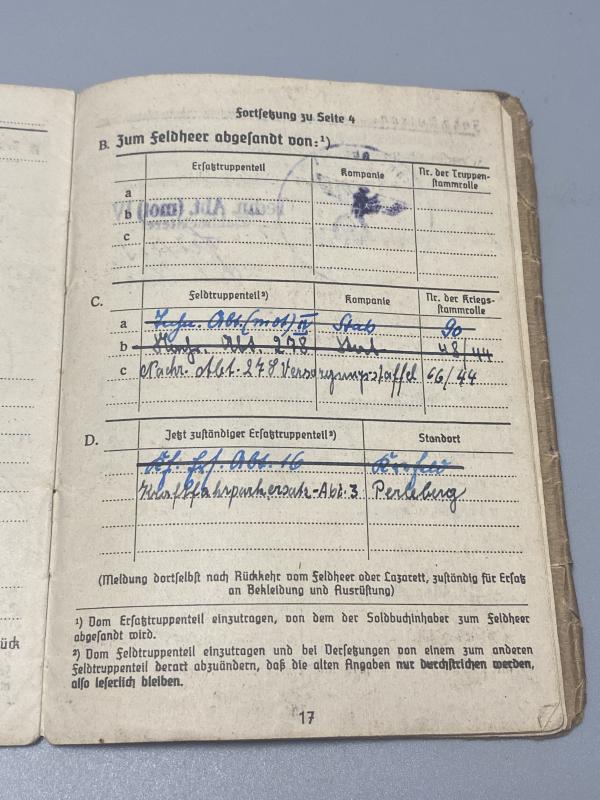 Fortsetzung zu Seite 4
B. Zum Feldheer abgesandt von:¹)
Ersatztruppenteil Kompanie Nr. der Truppen-
stammrolle
a
b
c
C. Feldtruppenteil²) Kompanie Nr. der Kriegs-
stammrolle
a Abt. (mot) IV Stab 90
b Abt. 278 48/44
c Nachr. Abt. 278 Versorgungsstaffel 66/44
D. Jetzt zuständiger Ersatztruppenteil²) Standort
Kf. Ers. Abt. 16 Krefeld
Kraftfahrparkersatz-Abt. 3 Perleberg
(Meldung dortselbst nach Rückkehr vom Feldheer oder Lazarett, zuständig für Ersatz
an Bekleidung und Ausrüstung)
¹) Vom Ersatztruppenteil einzutragen, von dem der Soldbuchinhaber zum Feldheer
abgesandt wird.
²) Vom Feldtruppenteil einzutragen und bei Versetzungen von einem zum anderen
Feldtruppenteil derart abzuändern, daß die alten Angaben nur durchstrichen werden,
also leserlich bleiben.
17
ück